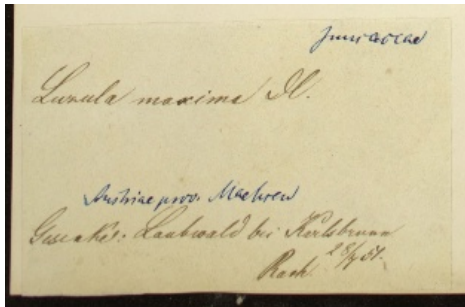 Juncaceae
Luzula maxima DC.
Austriae prov. Maehren
Gesenke: Laubwald bei Karlsbrunn
28/7 81.